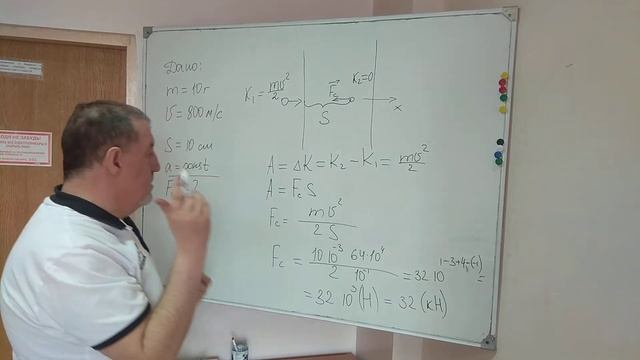 Дано:
m = 10 г
υ = 800 м/с
S = 10 см
a = const
F - ?
K₁ = mυ²/2
F⃗c
K₂=0
S
x
A = ΔK = K₂ - K₁ = mυ²/2
A = Fc S
Fc = mυ²/2 S
Fc = 10 10⁻³ 64·10⁴/2 10⁻¹ = 32 10¹⁻³⁺⁴⁻⁽⁻¹⁾ =
= 32 10³ (Н) = 32 (кН)